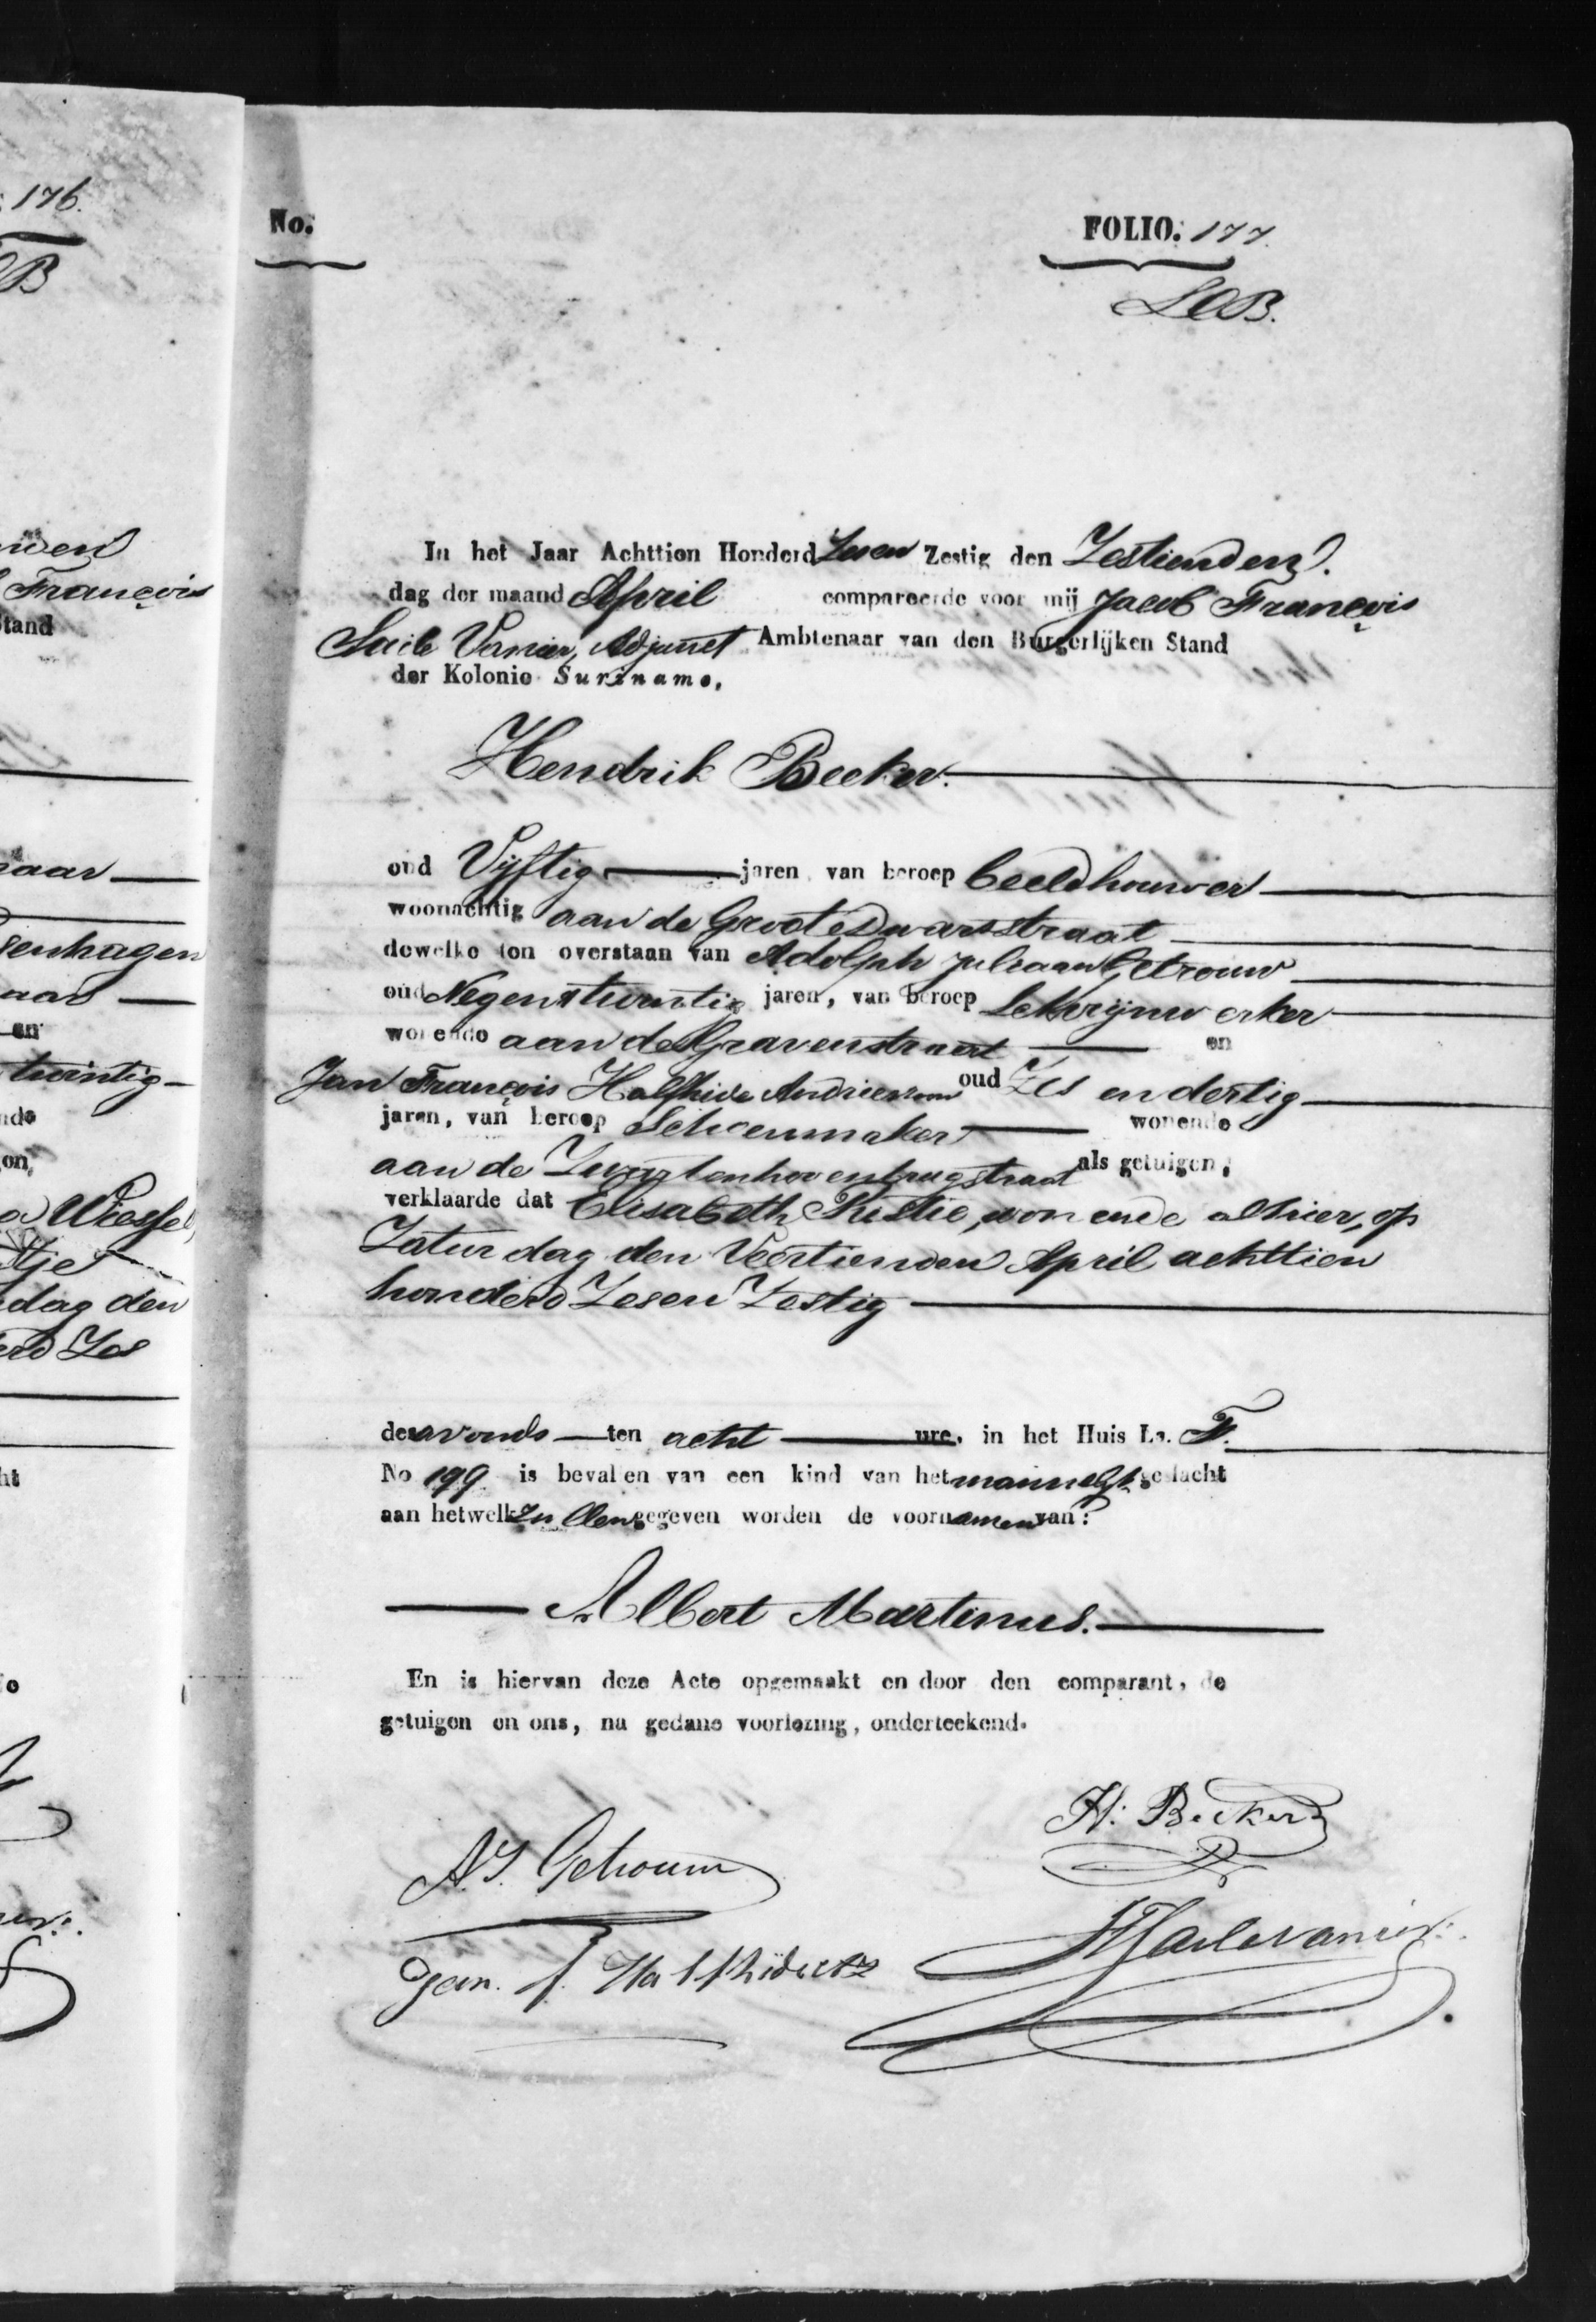 176.
B
No.
FOLIO. 177.
In het Jaar Achttien Honderd Zesen Zestig den Zestienden
dag der maand April compareerde voor mij Jacob François
Ambtenaar van den Burgerlijken Stand
der Kolonie Suriname,
Hendrik Becker.
oud Vijftig jaren van beroep beeldhouwer
woonachtig aan de Grootedwarsstraat
dewelke ten overstaan van Adolph Juliaan Getrouw
oud Negentwintig jaren, van beroep Schrijnwerker
wonende aan de Gravenstraat en
Jan François Halfhide Andrieszoon oud Zes en dertig
jaren, van beroep Schoenmaker wonende
aan de Zwartenhovenbrugstraat als getuigen,
verklaarde dat Elisabeth wonende alhier, op
Zaturdag den Veertienden April achttien
honderd Zesen Zestig
des avonds ten acht ure, in het Huis La. F.
No 199 is bevallen van een kind van het mannelijk geslacht
aan hetwelk zullen gegeven worden de voornamen van:
Albert Martinus.
En is hiervan deze Acte opgemaakt en door den comparant, de
getuigen en ons, na gedane voorlezing, onderteekend.
H. Becker
A. J. Getrouw
Jan. f. Halfhide Az